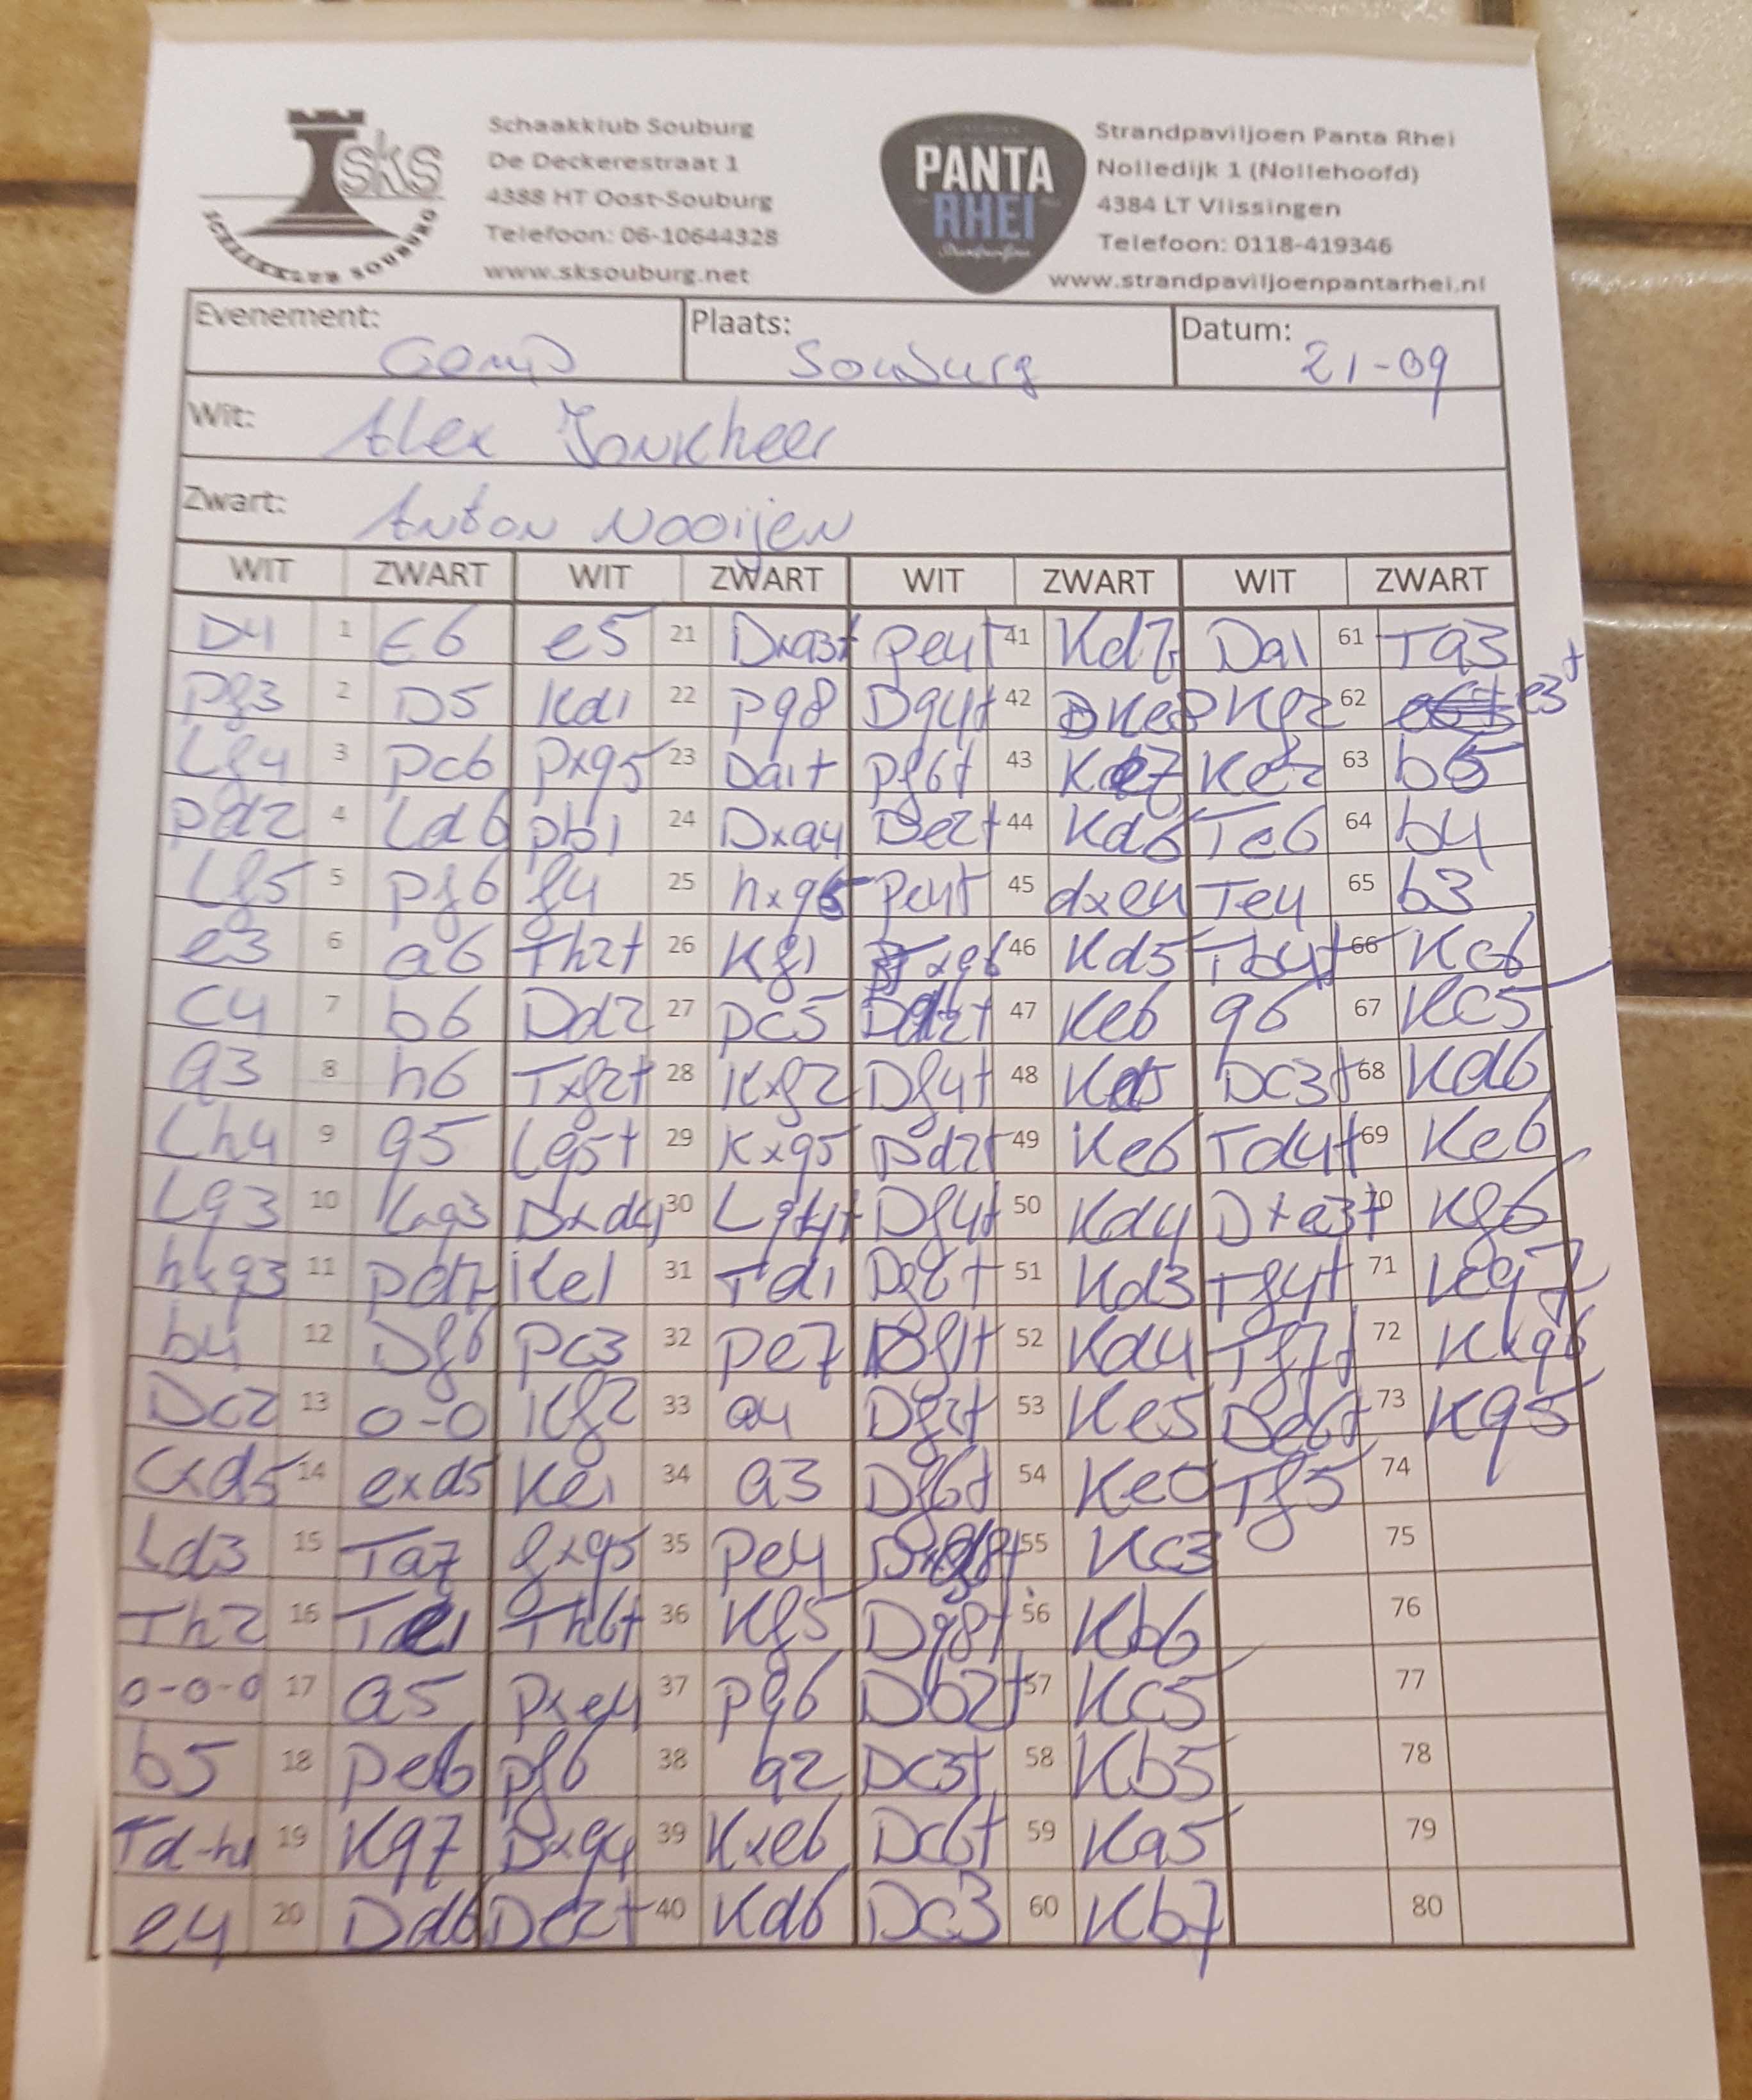 sks
SCHAAKKLUB SOUBURG
Schaakklub Souburg
De Deckerestraat 1
4388 HT Oost-Souburg
Telefoon: 06-10644328
www.sksouburg.net
PANTA
RHEI
Strandpaviljoen
Strandpaviljoen Panta Rhei
Nolledijk 1 (Nollehoofd)
4384 LT Vlissingen
Telefoon: 0118-419346
www.strandpaviljoenpantarhei.nl
Evenement: Comp Plaats: Souburg Datum: 21-09
Wit: Alex Jonkheer
Zwart: Anton Nooijen
WIT ZWART WIT ZWART WIT ZWART WIT ZWART
D4 1 E6 e5 21 Dxa3+ Pe4+ 41 Kd7 Da1 61 Ta3
Pf3 2 D5 Kd1 22 Pg8 Dg4+ 42 Ke8 Kf2 62 e3+
Lf4 3 Pc6 Pxg5 23 Da1+ Pf6+ 43 Ke7 Ke2 63 b5
Pd2 4 Ld6 Pb1 24 Dxa4 De2+ 44 Kd6 Te6 64 b4
Lg5 5 Pf6 f4 25 hxg5 Pe4+ 45 dxe4 Te4 65 b3
e3 6 a6 Th2+ 26 Kf1 Txg6 46 Kd5 Tb4+ 66 Kc6
C4 7 b6 Dd2 27 Pc5 Dd2+ 47 Ke6 g6 67 Kc5
a3 8 h6 Txf2+ 28 Kxf2 Df4+ 48 Kd5 Dc3+ 68 Kd6
Lh4 9 g5 Lg5+ 29 Kxg5 Dd2+ 49 Ke6 Td4+ 69 Ke6
Lg3 10 Lxg3 Dxd4 30 Lg4+ Df4+ 50 Kd4 Dxe3+ 70 Kf6
hxg3 11 Pd7 Ke1 31 Td1 Dg2+ 51 Kd3 Tf4+ 71 Kg7
b4 12 Df6 Pc3 32 Pe7 Df1+ 52 Kd4 Tf7+ 72 Kxg6
Dc2 13 0-0 Kf2 33 a4 Df2+ 53 Ke5 De6+ 73 Kg5
cxd5 14 exd5 Ke1 34 a3 Df6+ 54 Tf5 74
Ld3 15 Ta7 fxg5 35 Pe4 55 Kc3 75
Th2 16 Th6+ 36 Kf5 Dg8+ 56 Kb6 76
0-0-0 17 a5 Pxe4 37 Pg6 Db2+ 57 Kc5 77
b5 18 Pe6 Pf6 38 a2 Dc3+ 58 Kb5 78
Td-h1 19 Kg7 Dxg4 39 Kxe6 Dc6+ 59 Ka5 79
e4 20 Dd6 De2+ 40 Kd6 Dc3 60 Kb7 80